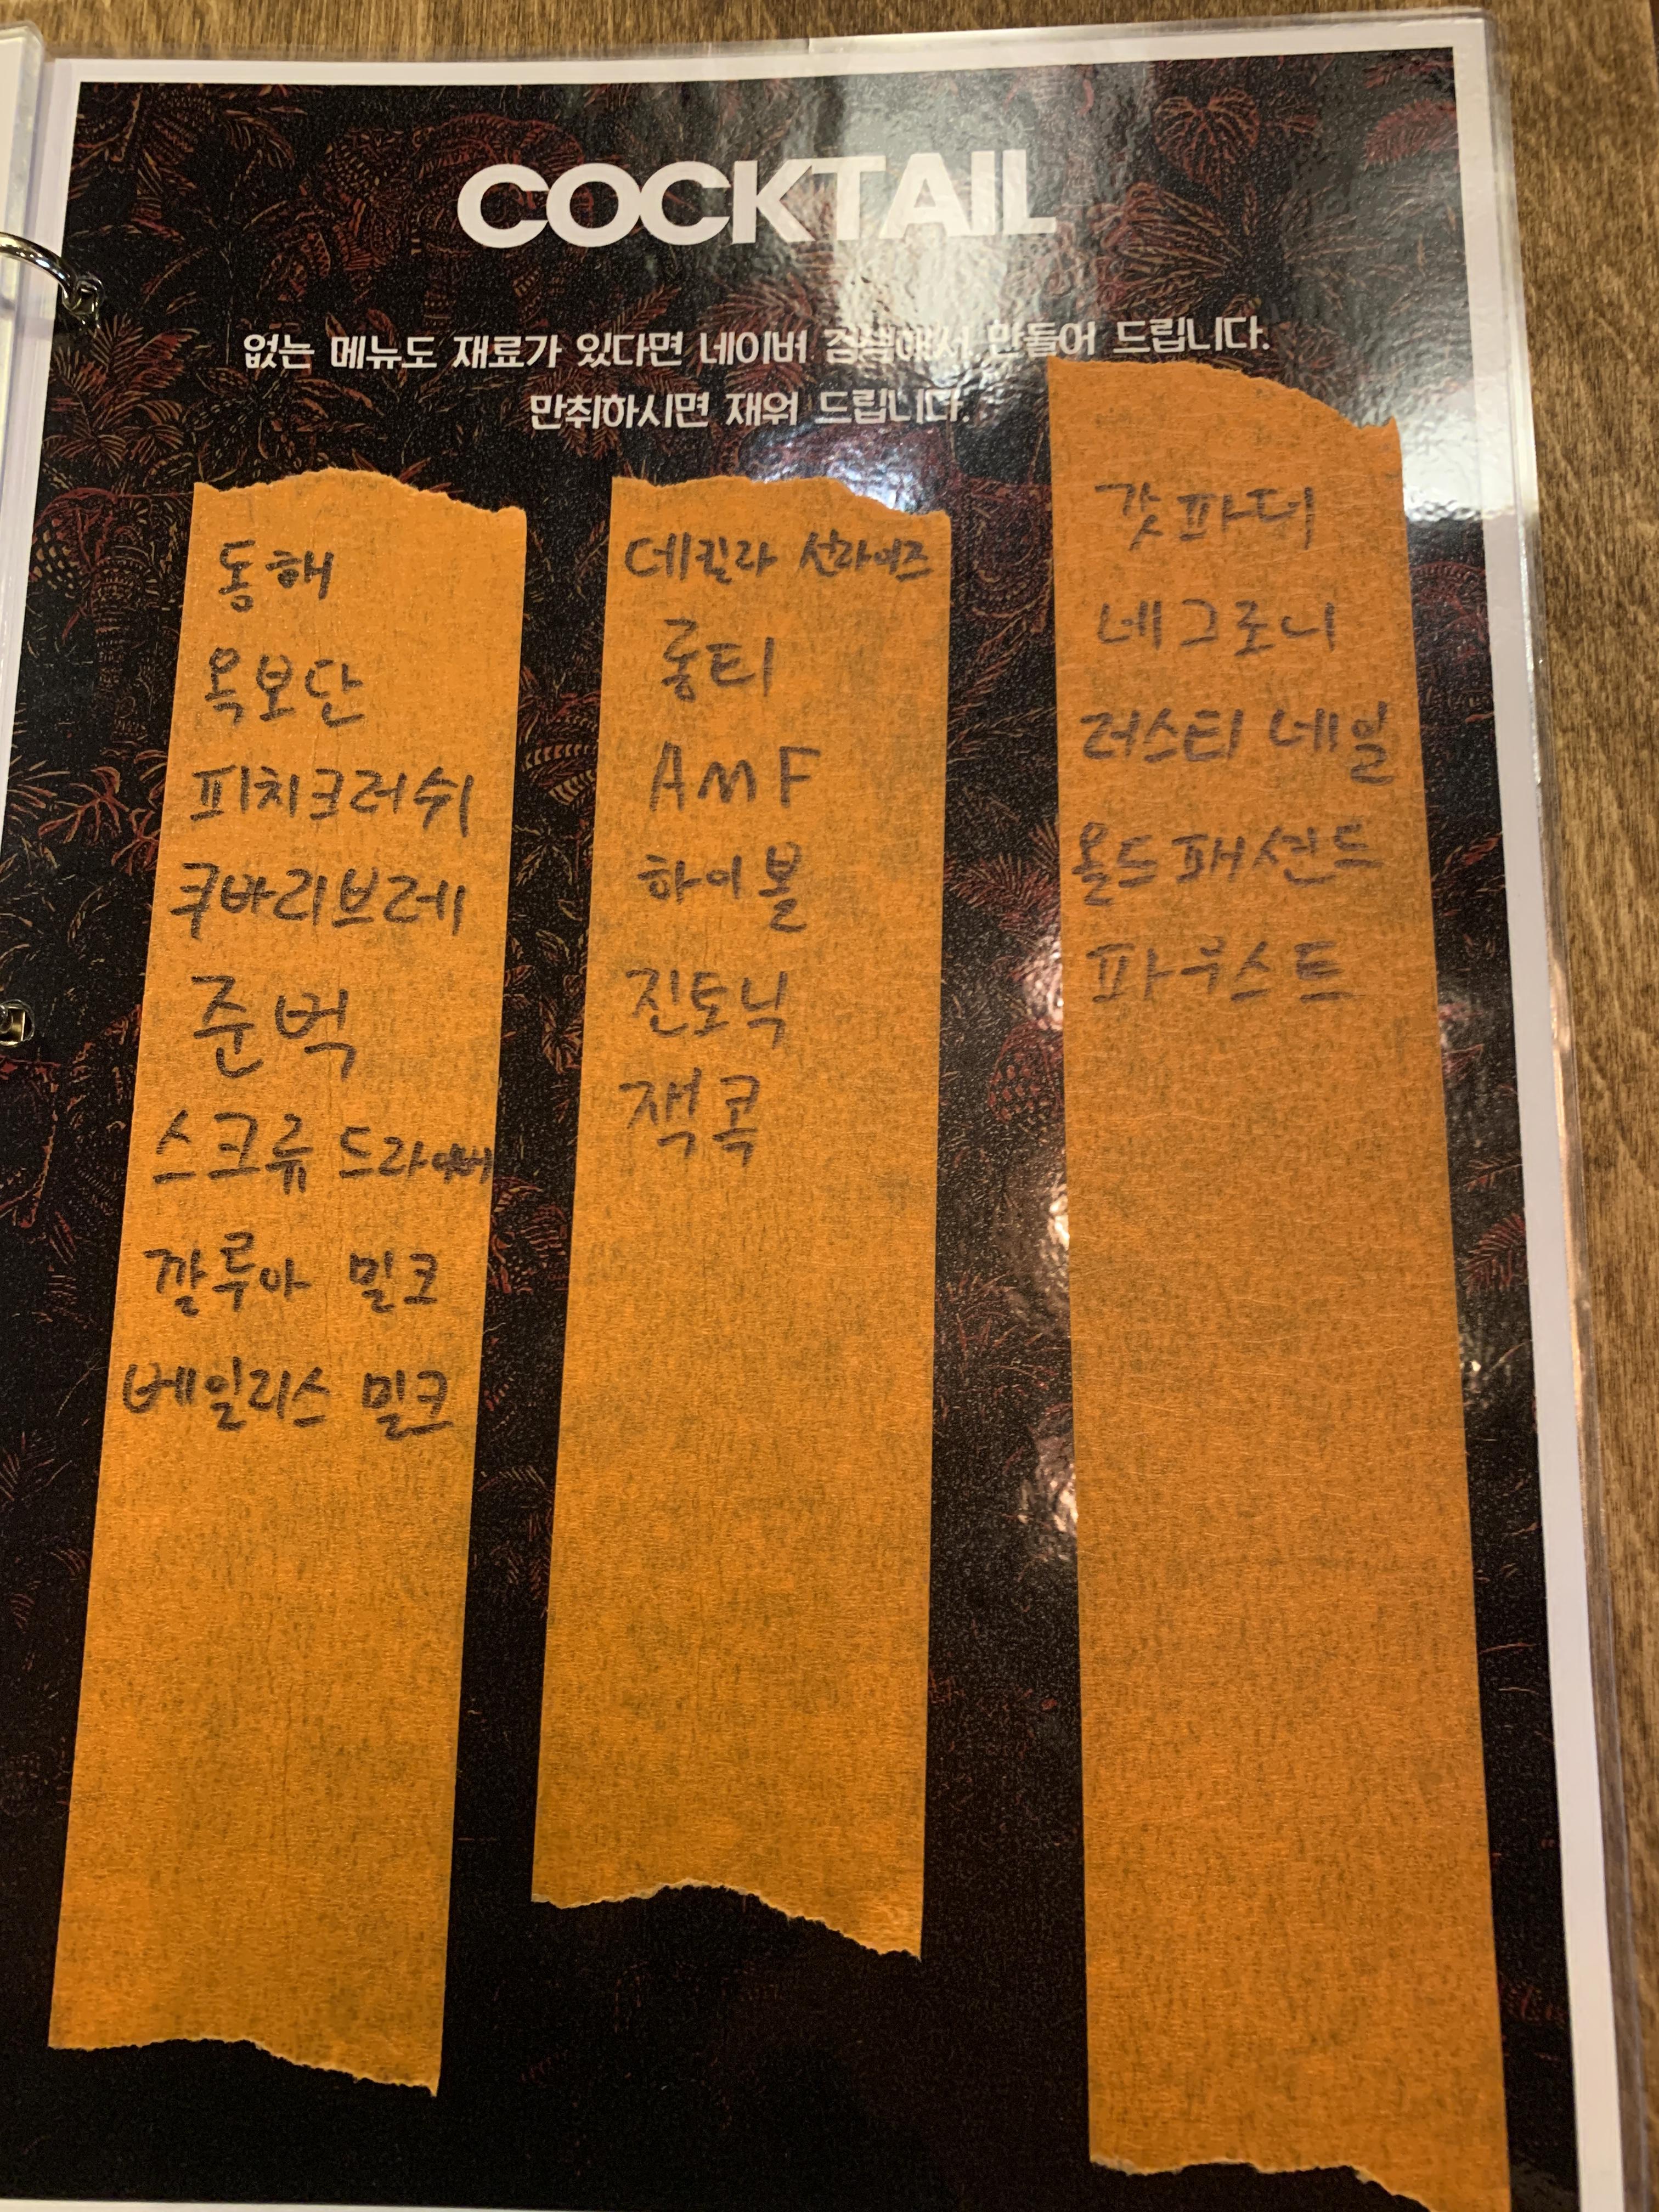 COCKTAIL
없는 메뉴도 재료가 있다면 네이버 검색해서 만들어 드립니다.
만취하시면 재워 드립니다.
동해
옥보단
피치크러쉬
쿠바리브레
준벅
스크류 드라이버
깔루아 밀크
베일리스 밀크
데킬라 선라이즈
롱티
AMF
하이볼
진토닉
잭콕
갓파더
네그로니
러스티 네일
올드패션드
파우스트